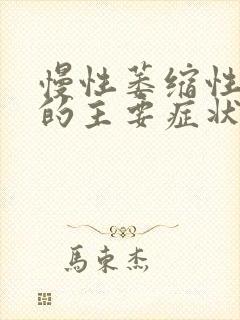 慢性萎缩性
的主要症状
馬東杰